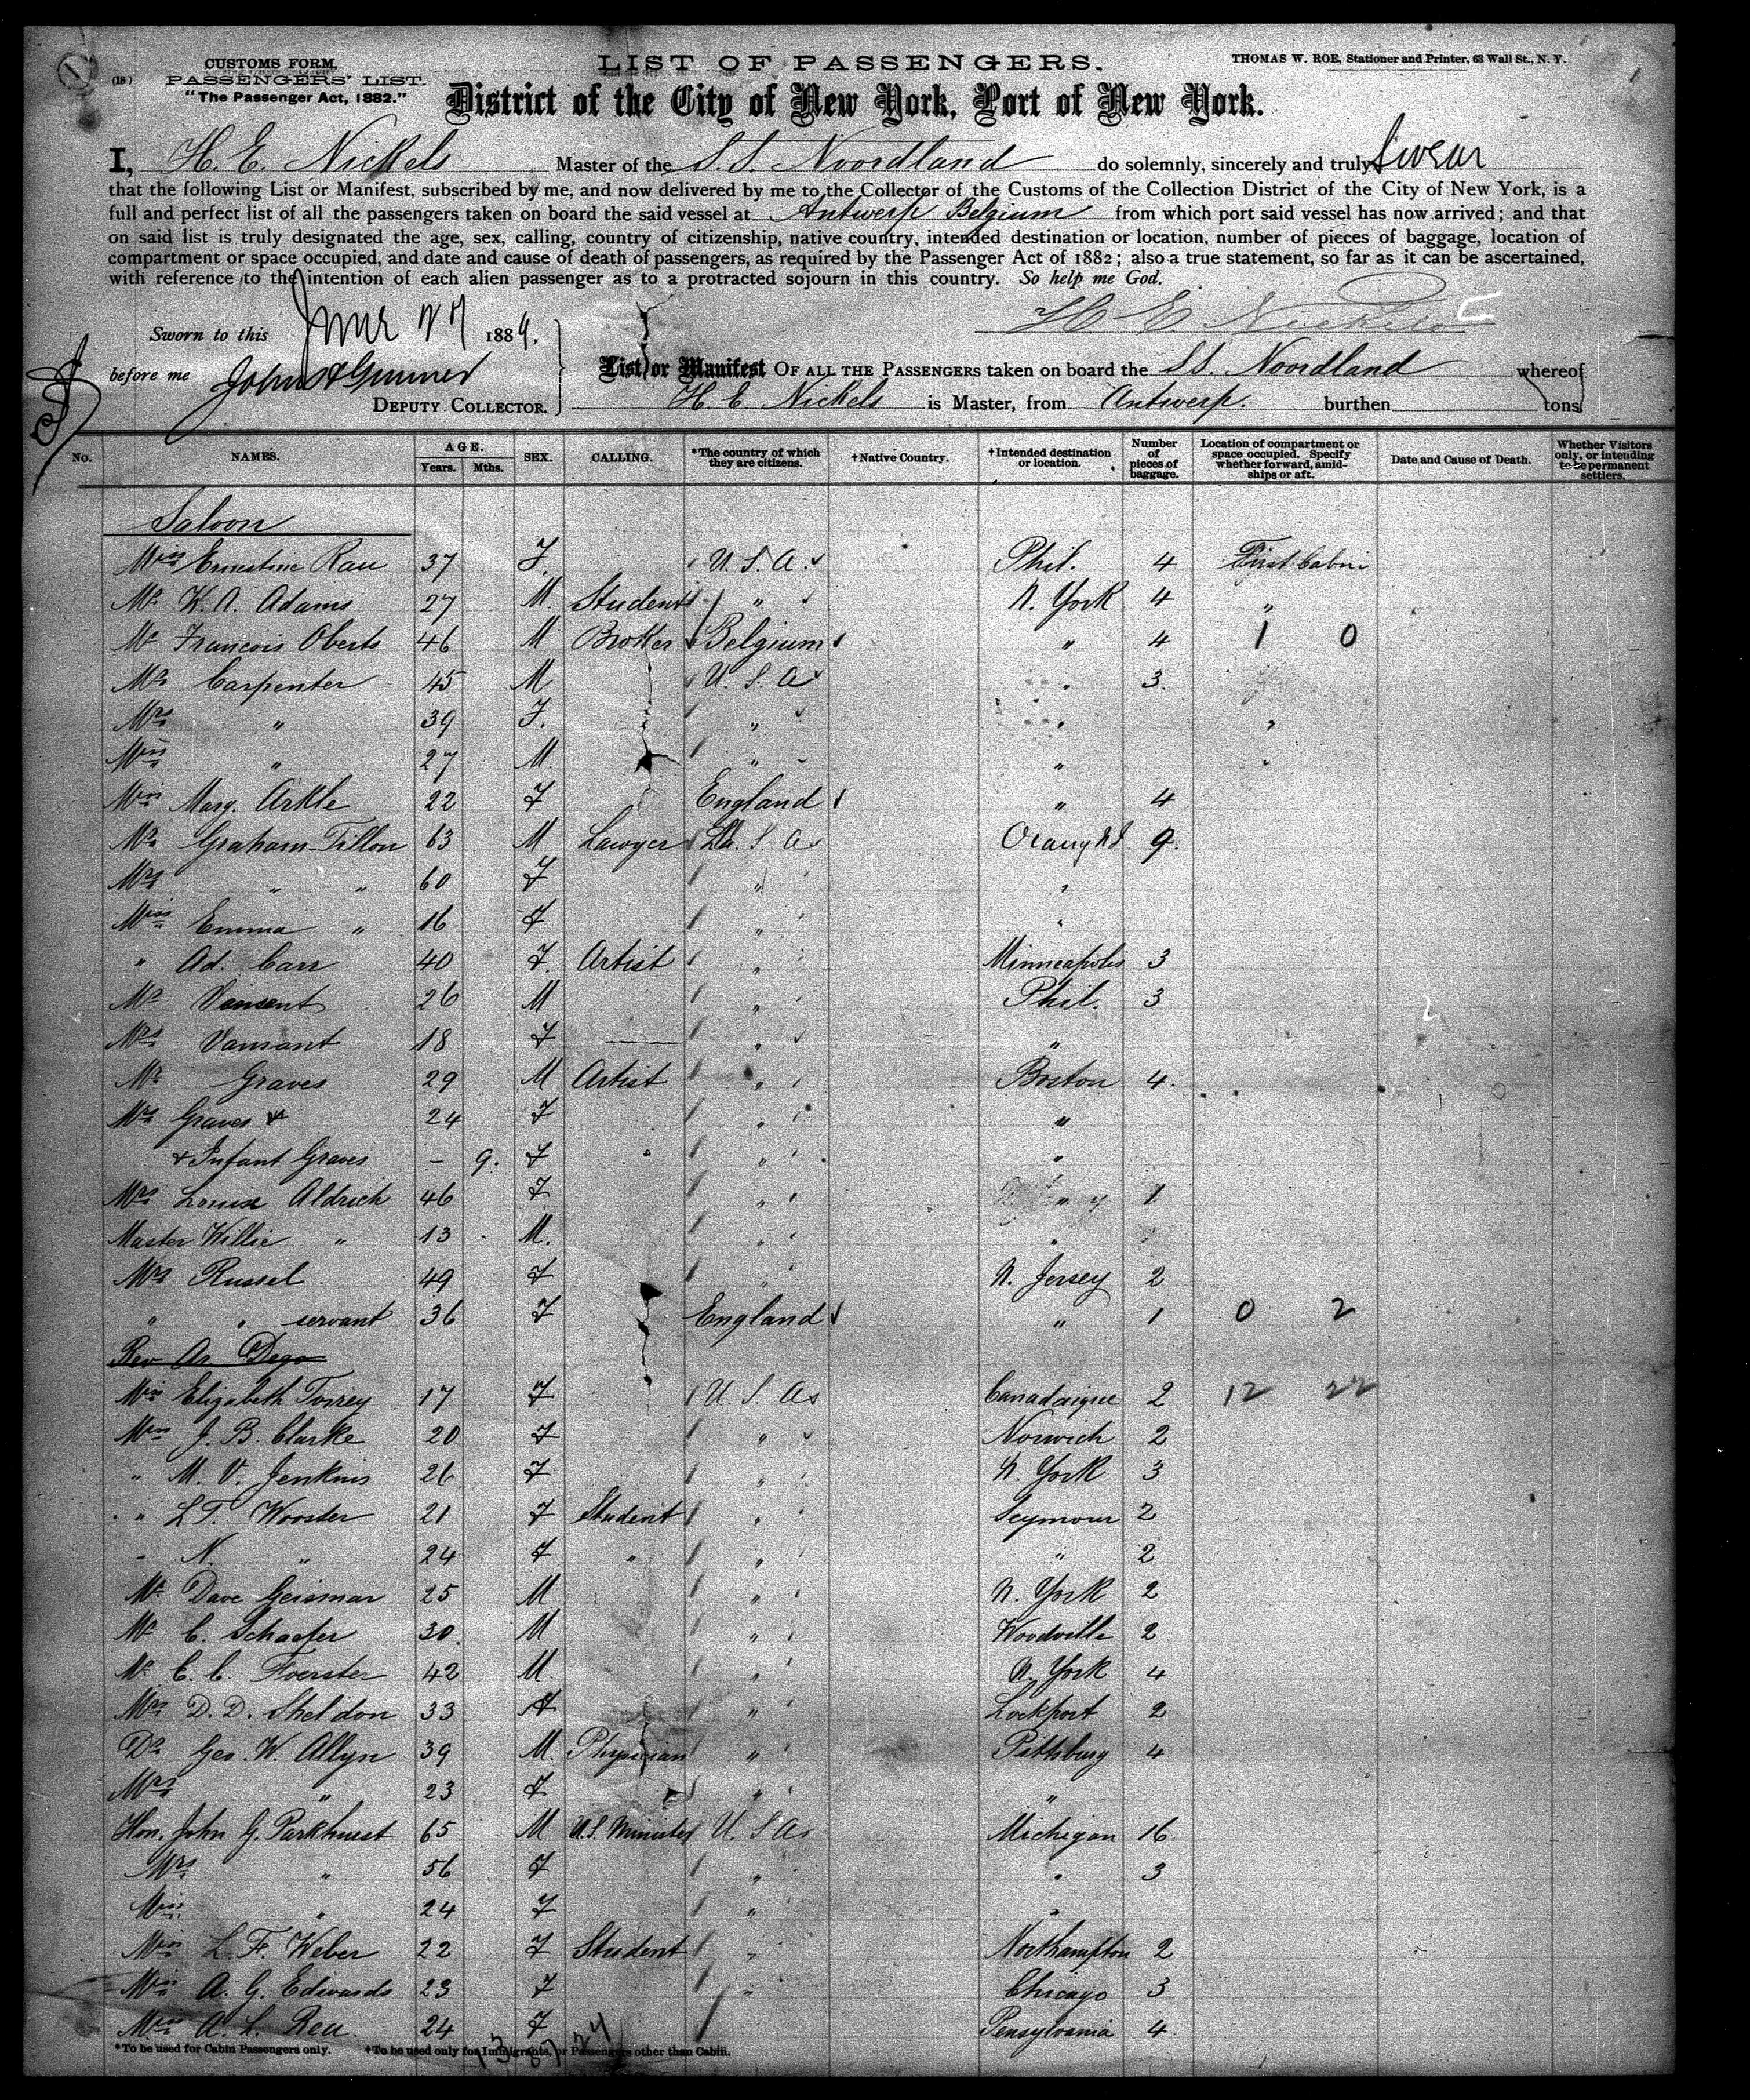 1
CUSTOMS FORM.
(18) PASSENGERS' LIST.
"The Passenger Act, 1882."
LIST OF PASSENGERS.
THOMAS W. ROE, Stationer and Printer, 63 Wall St., N. Y.
District of the City of New York, Port of New York.
I, H. E. Nickels Master of the S.S. Noordland do solemnly, sincerely and truly Swear
that the following List or Manifest, subscribed by me, and now delivered by me to the Collector of the Customs of the Collection District of the City of New York, is a
full and perfect list of all the passengers taken on board the said vessel at Antwerp Belgium from which port said vessel has now arrived; and that
on said list is truly designated the age, sex, calling, country of citizenship, native country, intended destination or location, number of pieces of baggage, location of
compartment or space occupied, and date and cause of death of passengers, as required by the Passenger Act of 1882; also a true statement, so far as it can be ascertained,
with reference to the intention of each alien passenger as to a protracted sojourn in this country. So help me God.
H E Nickels
Sworn to this June 27 1889.
before me
DEPUTY COLLECTOR.
List or Manifest OF ALL THE PASSENGERS taken on board the SS. Noordland whereof
H. E. Nickels is Master, from Antwerp. burthen tons
No. NAMES. AGE. Years. Mths. SEX. CALLING. *The country of which they are citizens. †Native Country. †Intended destination or location. Number of pieces of baggage. Location of compartment or space occupied. Specify whether forward, amidships or aft. Date and Cause of Death. Whether Visitors only, or intending to be permanent settlers.
Saloon
Miss Ernestine Rau 37 F. U. S. A. Phil. 4 First Cabin
Mr K. A. Adams 27 M. Student " N. York 4 "
Mr Francois Oberts 46 M Broker Belgium " 4 1 0
Mr Carpenter 45 M U. S. A " 3.
Mrs " 39 F. " " "
Miss " 27 M. " "
Miss Marg. Arkle 22 F England " 4
Mr Graham-Tillon 63 M Lawyer U. S. A 9.
Mrs " " 60 F " "
Miss Emma " 16 F " "
" Ad. Carr 40 F. Artist " Minneapolis 3
Mr Vansant 26 M " Phil. 3
Mrs Vansant 18 F — " "
Mr Graves 29 M Artist " Boston 4.
Mrs Graves & 24 F " "
& Infant Graves – 9. F " "
Mrs Louise Aldrich 46 F " " 1
Master Willie " 13 M. " "
Mrs Russel 49 F " N. Jersey 2
" " servant 36 F England " 1 0 2
Rev Ar Dego
Miss Elizabeth Torrey 17 F U. S. A Canadaigue 2 12 22
Miss J. B. Clarke 20 F " Norwich 2
" M. V. Jenkins 26 F " N. York 3
" L T. Wooster 21 F Student " Seymour 2
" N. " 24 F " " " 2
Mr Dave Geismar 25 M " N. York 2
Mr C. Schaefer 30. M " Woodville 2
Mr E. C. Foerster 42 M. " N. York 4
Mrs D. D. Sheldon 33 F " Lockport 2
Dr Geo. W. Allyn 39 M. Physician " Pittsburg 4
Mrs " 23 F " "
Hon. John G. Parkhurst 65 M U.S. Minister U. S A. Michigan 16
Mrs " 56 F " " 3
Miss " 24 F " "
Miss L. F. Weber 22 F Student " Northampton 2
Miss A. G. Edwards 23 F " Chicago 3
Miss A. L. Rea 24 F Pensylvania 4
*To be used for Cabin Passengers only. †To be used only for Immigrants, or Passengers other than Cabin.